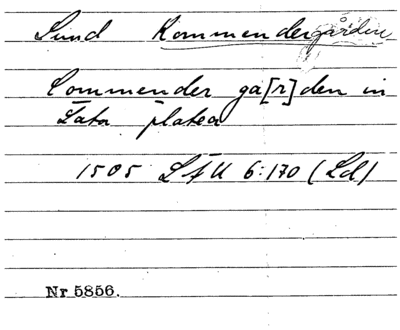 Lund Kommendergården
Commender ga[r]den in
Lata platea
1505 LÄU 6:170 (Ld)
Nr 5856.